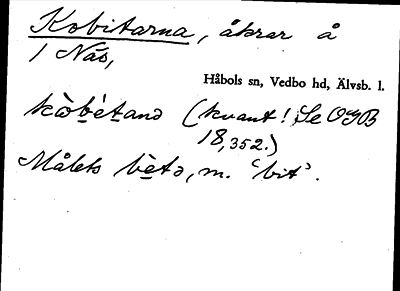 Kobitarna, åkrar å
1 Näs,
Håbols sn, Vedbo hd, Älvsb. l.
kò̀bétanə (kvant! Se OGB
18,352.)
Målets bètə, m. 'bit'.